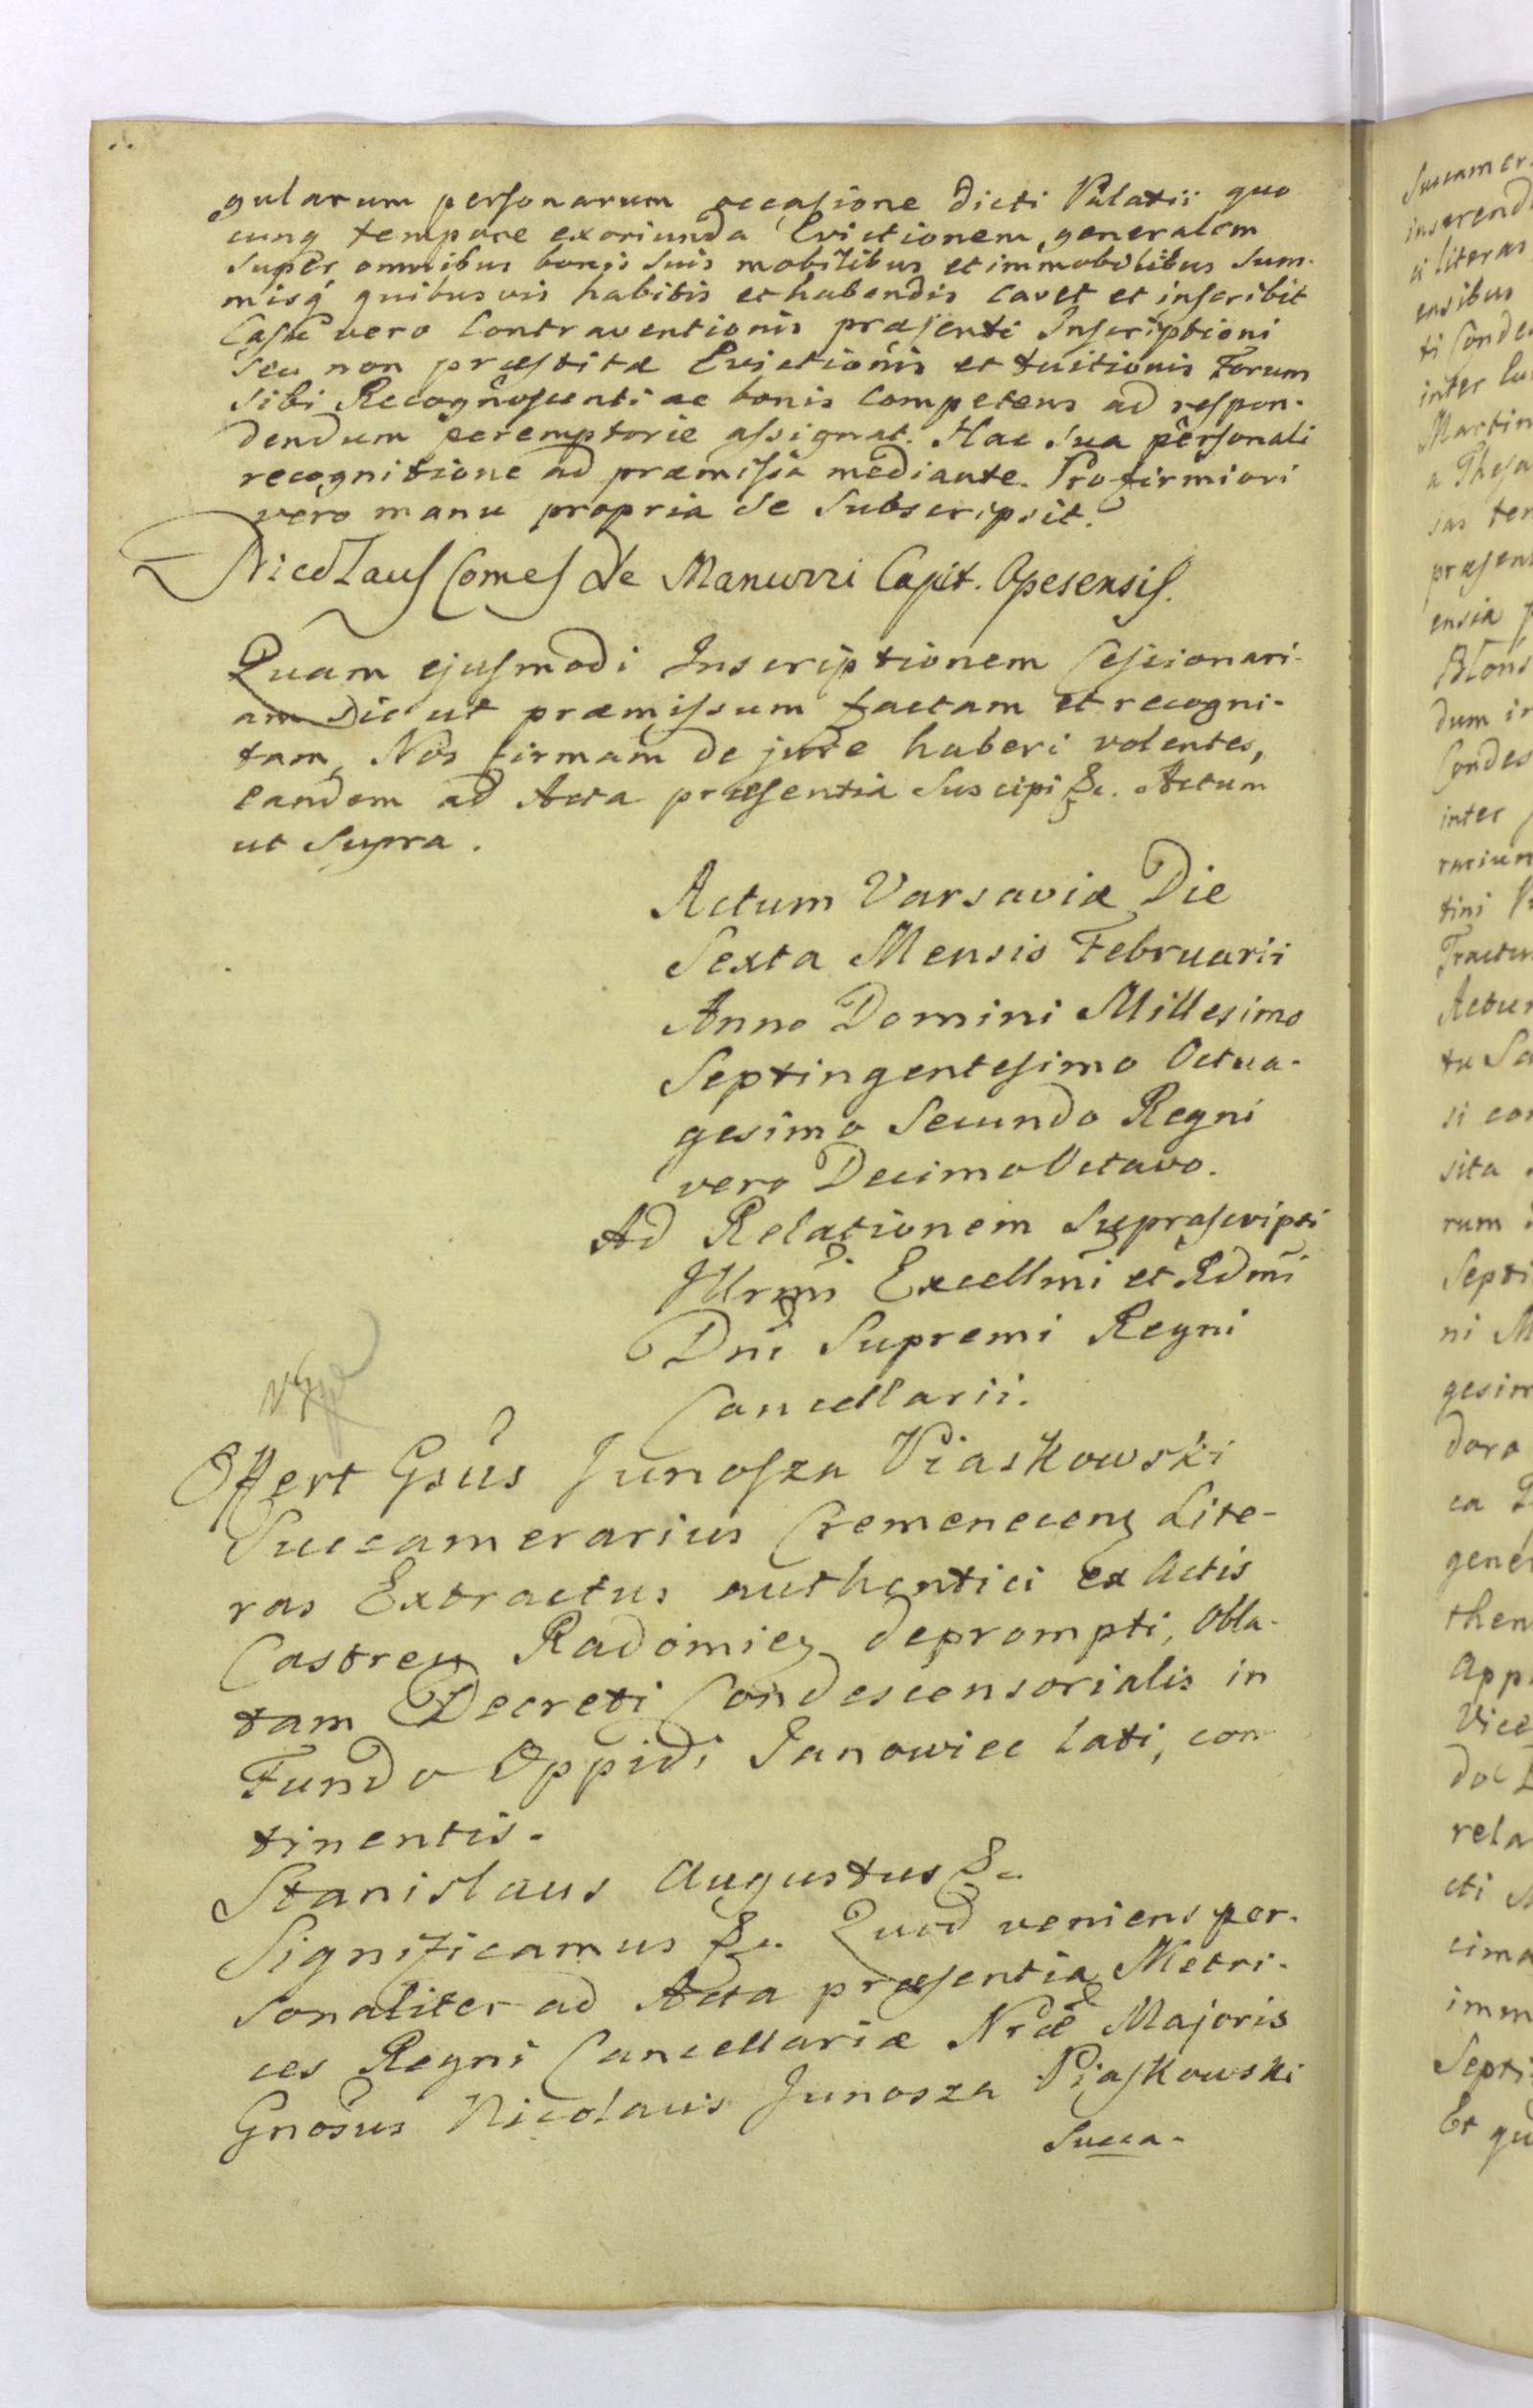 gularum personarum occasione dicti Palatii quo
cunq tempore exoriunda Evictionem generalem
super omnibus bonis suis mobilibus et immobilibus Sum-
misq́ quibusvis habitis et habendis cavet et inscribit
Casu vero Contraventionis præsenti Inscriptioni
seu non præstitæ Evictionis et tuitionis Forum
sibi Recognoscenti ac bonis Competens ad respon-
dendum peremptorie assignat. Hac sua personali
recognitione ad præmissa mediante. Pro firmiori
vero manu propria se Subscripsit.
Nicolaus Comes de Manuzzi Capit. Opesensis.
Quam ejusmodi Inscriptionem Cessionari-
am sic ut præmissum factam et recogni-
tam, Nos firmam de jure haberi volentes,
eandem ad Acta præsentia suscipi &c. Actum
ut Supra.
Actum Varsaviæ Die
Sexta Mensis Februarii
Anno Domini Millesimo
Septingentesimo Octua-
gesimo Secundo Regni
vero Decimo Octavo.
Ad Relationem Suprascripti
Illrmi Excellmi et Rdmi
Dni Supremi Regni
Cancellarii.
Offert Gsus Junosza Piaskowski
Succamerarius Cremenecens Lite-
ras Extractus authentici ex Actis
Castren Radomien depromti, Obla-
tam Decreti Condescensorialis in
Fundo Oppidi Janowiec lati, con
tinentis.
Stanislaus Augustus &c.
Significamus &c. Quod veniens per-
sonaliter ad Acta præsentia Metri-
ces Regni Cancellariæ Nræ Majoris
Gnosus Nicolaus Junosza Piaskowski
Succa-